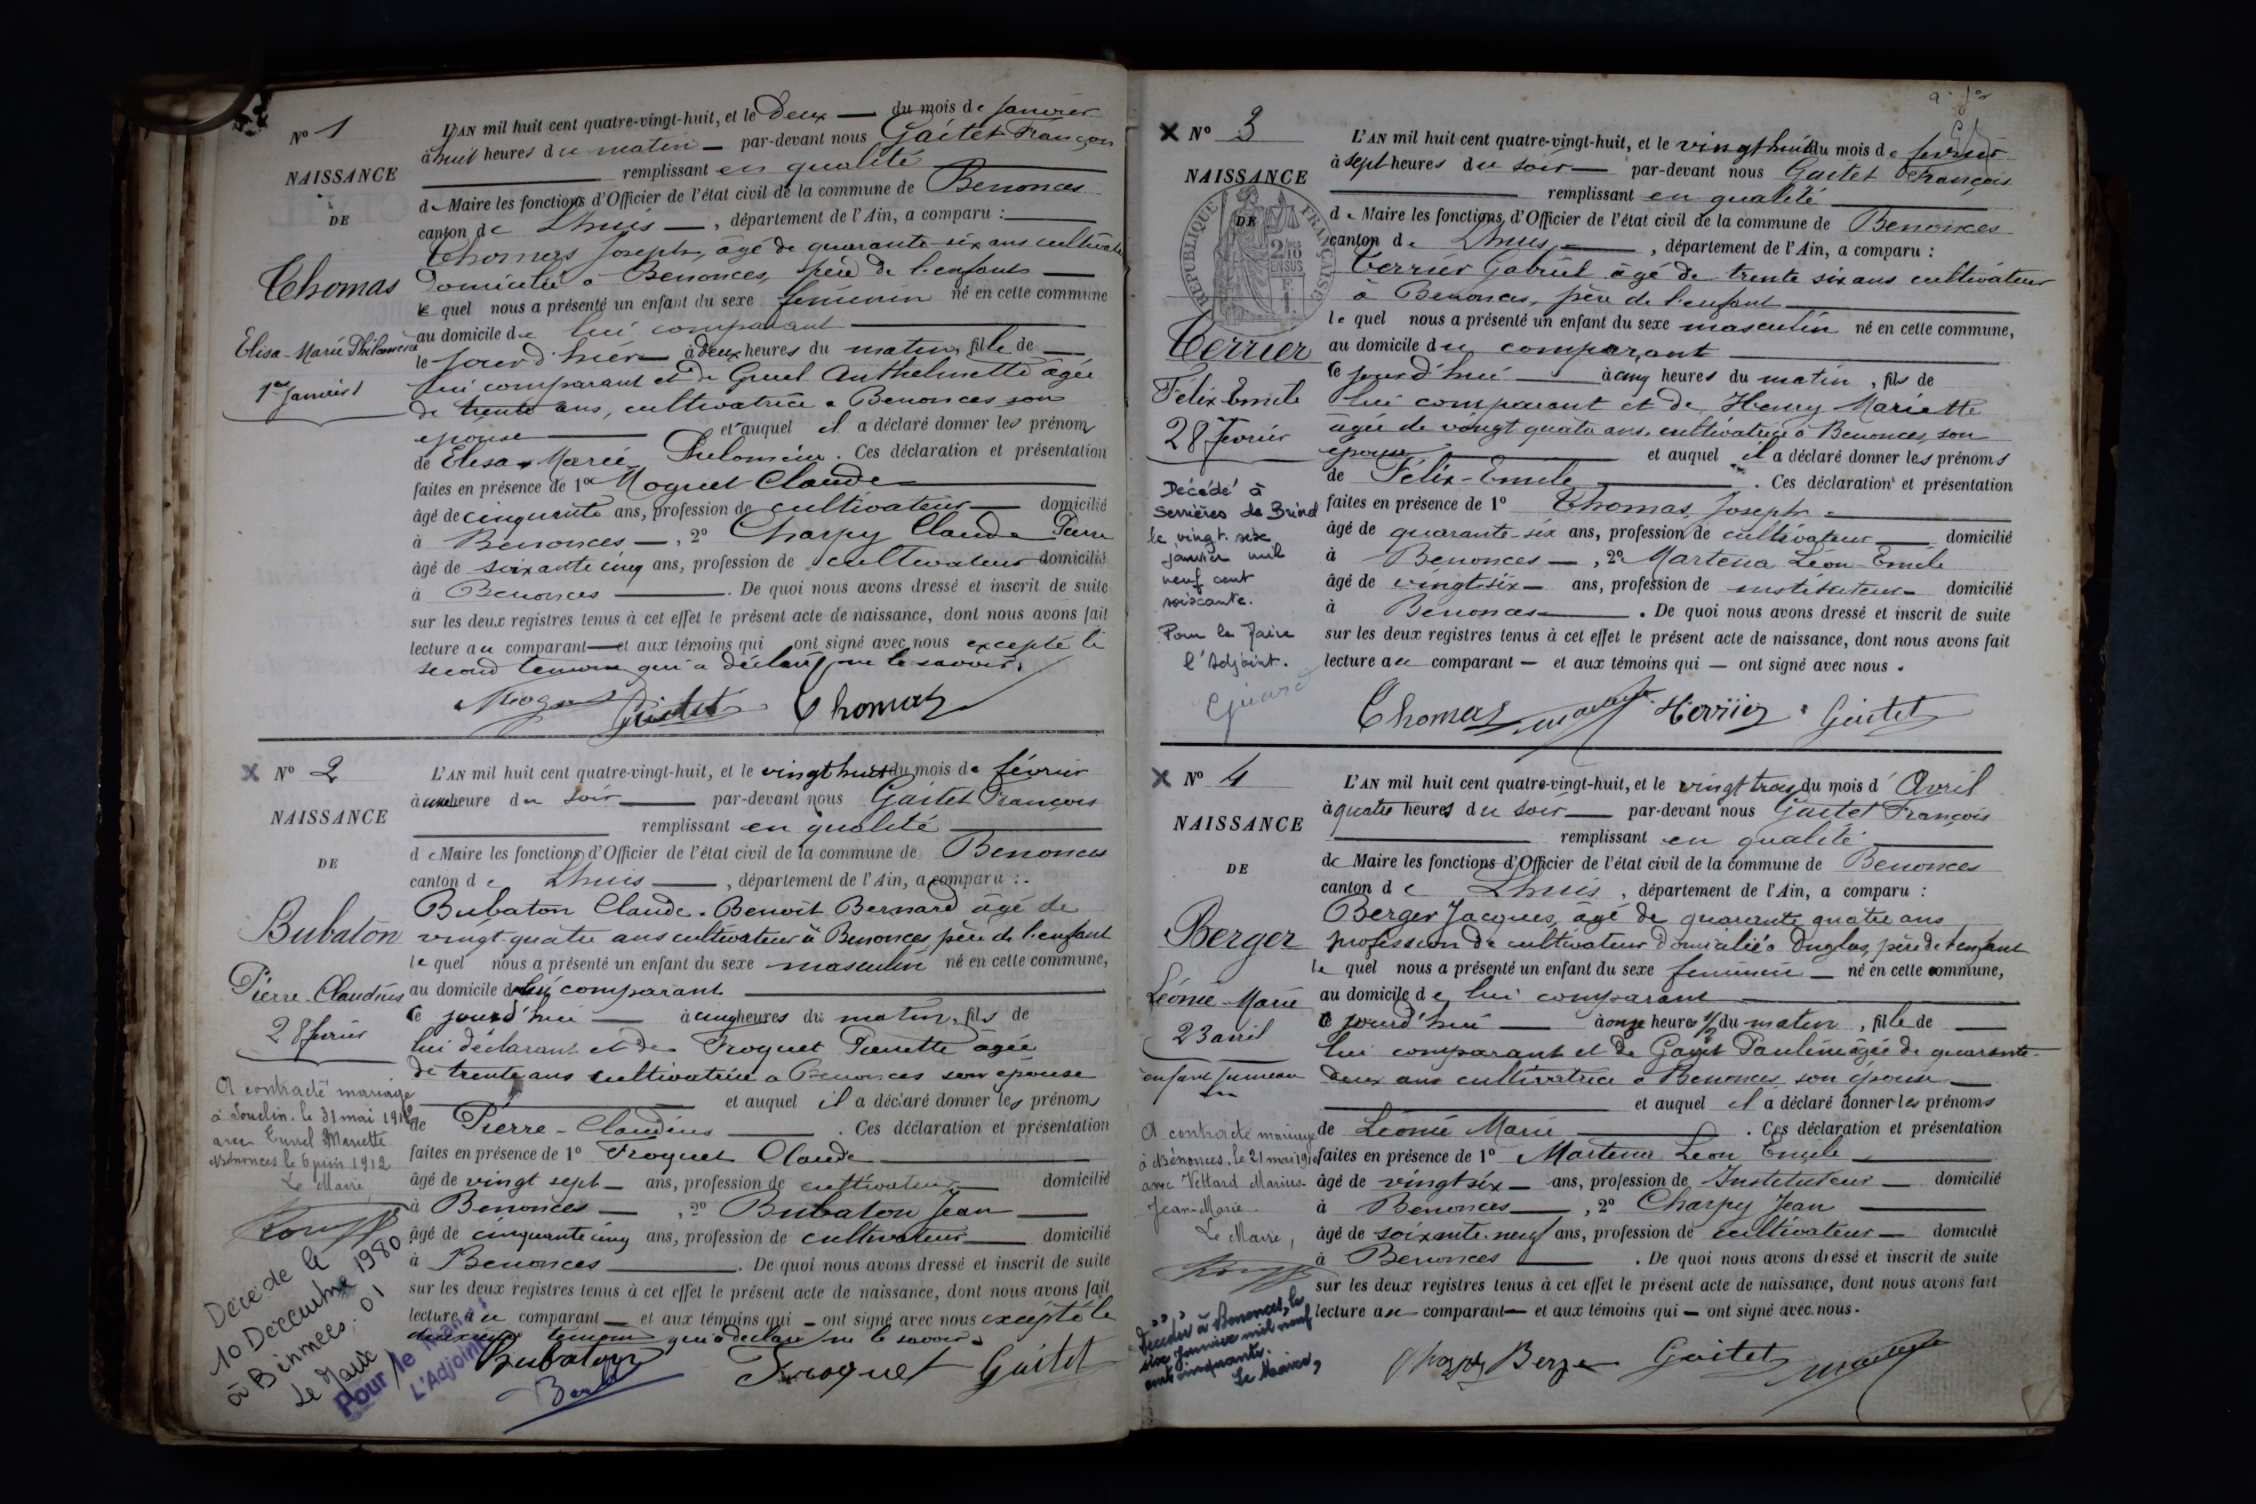 N° 1
NAISSANCE
DE
Thomas
Elisa-Marie Philomène
1er Janvier
L'AN mil huit cent quatre-vingt-huit, et le deux — du mois de Janvier
à huit heures du matin — par-devant nous Gaitet François
remplissant en qualité
de Maire les fonctions d'Officier de l'état civil de la commune de Benonces
canton de Lhuis —, département de l'Ain, a comparu :
Thomas Joseph, âgé de quarante-six ans cultivateur
Domicilié à Benonces, père de l'enfant —
le quel nous a présenté un enfant du sexe feminin né en cette commune
au domicile de lui comparant
le jour d'hier à deux heures du matin, fille de —
lui comparant et de Gruel Anthelmette âgée
de trente ans, cultivatrice à Benonces son
epouse — et auquel il a déclaré donner les prénoms
de Elisa-Marie Philomène. Ces déclaration et présentation
faites en présence de 1° Moguet Claude
âgé de cinquante ans, profession de cultivateur — domicilié
à Benonces —, 2° Charpy Claude Pierre
âgé de soixante cinq ans, profession de cultivateur domicilié
à Benonces —. De quoi nous avons dressé et inscrit de suite
sur les deux registres tenus à cet effet le présent acte de naissance, dont nous avons fait
lecture au comparant — et aux témoins qui ont signé avec nous excepté le
second temoin qui a déclaré ne le savoir.
Gaitet Thomas
N° 2
NAISSANCE
DE
Bubaton
Pierre-Claudius
28 février
A contracté mariage
à Souclin. le 31 mai 1912
avec Curvel Mariette
Bénonces le 6 juin 1912
Le Maire
Décédé le
10 Décembre 1980
à
Le Maire
Pour le Maire
L'Adjoint
L'AN mil huit cent quatre-vingt-huit, et le vingt huit du mois de février
à une heure du soir — par-devant nous Gaitet François
remplissant en qualité
de Maire les fonctions d'Officier de l'état civil de la commune de Benonces
canton de Lhuis —, département de l'Ain, a comparu :
Bubaton Claude-Benoît Bernard âgé de
vingt-quatre ans cultivateur à Benonces père de l'enfant
le quel nous a présenté un enfant du sexe masculin né en cette commune,
au domicile de lui comparant
ce jourd'hui — à cinq heures du matin, fils de
lui déclarant et de Froquet Pierrette âgée
de trente ans cultivatrice à Benonces son épouse
et auquel il a déclaré donner les prénoms
de Pierre-Claudius —. Ces déclaration et présentation
faites en présence de 1° Froquet Claude
âgé de vingt sept — ans, profession de cultivateur — domicilié
à Benonces —, 2° Bubaton Jean —
âgé de cinquante cinq ans, profession de cultivateur — domicilié
à Benonces —. De quoi nous avons dressé et inscrit de suite
sur les deux registres tenus à cet effet le présent acte de naissance, dont nous avons fait
lecture au comparant — et aux témoins qui — ont signé avec nous excepté le
deuxième temoin qui a déclaré ne le savoir.
Bubaton Froquet Gaitet
N° 3
NAISSANCE
DE
RÉPUBLIQUE FRANÇAISE
Terrier
Félix-Emile
28 février
Décédé à
Serrières de Briord
le vingt-six
janvier mil
neuf cent
soixante.
Pour le Maire
l'Adjoint.
L'AN mil huit cent quatre-vingt-huit, et le vingt huit du mois de février
à sept heures du soir — par-devant nous Gaitet François
remplissant en qualité
de Maire les fonctions d'Officier de l'état civil de la commune de Benonces
canton de Lhuis —, département de l'Ain, a comparu :
Terrier Gabriel âgé de trente six ans cultivateur
à Benonces, père de l'enfant
le quel nous a présenté un enfant du sexe masculin né en cette commune,
au domicile du comparant
ce jourd'hui — à cinq heures du matin, fils de
lui comparant et de Henry Mariette
âgée de vingt quatre ans, cultivatrice à Benonces, son
épouse — et auquel il a déclaré donner les prénoms
de Félix-Emile —. Ces déclaration et présentation
faites en présence de 1° Thomas Joseph
âgé de quarante-six ans, profession de cultivateur — domicilié
à Benonces —, 2° Martena Léon-Emile
âgé de vingt-six — ans, profession de instituteur — domicilié
à Benonces —. De quoi nous avons dressé et inscrit de suite
sur les deux registres tenus à cet effet le présent acte de naissance, dont nous avons fait
lecture au comparant — et aux témoins qui — ont signé avec nous.
Thomas Terrier Gaitet
N° 4
NAISSANCE
DE
Berger
Léonie-Marie
23 avril
enfant jumeau
A contracté mariage
à Bénonces, le 21 mai 1910
avec Vettard Marius-
Jean-Marie
Le Maire,
Décédée à Benonces, le
six janvier mil neuf
cent cinquante.
Le Maire,
L'AN mil huit cent quatre-vingt-huit, et le vingt trois du mois d' Avril
à quatre heures du soir — par-devant nous Gaitet François
remplissant en qualité
de Maire les fonctions d'Officier de l'état civil de la commune de Benonces
canton de Lhuis, département de l'Ain, a comparu :
Berger Jacques, âgé de quarante quatre ans
profession de cultivateur domicilié à Onglas, père de l'enfant
le quel nous a présenté un enfant du sexe feminin — né en cette commune,
au domicile de lui comparant
ce jourd'hui — à onze heures ½ du matin, fille de —
lui comparant et de Gayet Pauline âgée de quarante-
deux ans cultivatrice à Benonces son épouse —
et auquel il a déclaré donner les prénoms
de Léonie Marie —. Ces déclaration et présentation
faites en présence de 1° Martena Léon Emile —
âgé de vingt six — ans, profession de Instituteur — domicilié
à Benonces —, 2° Charpy Jean —
âgé de soixante-neuf ans, profession de cultivateur — domicilié
à Benonces —. De quoi nous avons dressé et inscrit de suite
sur les deux registres tenus à cet effet le présent acte de naissance, dont nous avons fait
lecture au comparant — et aux témoins qui — ont signé avec nous.
Charpy Berger Gaitet